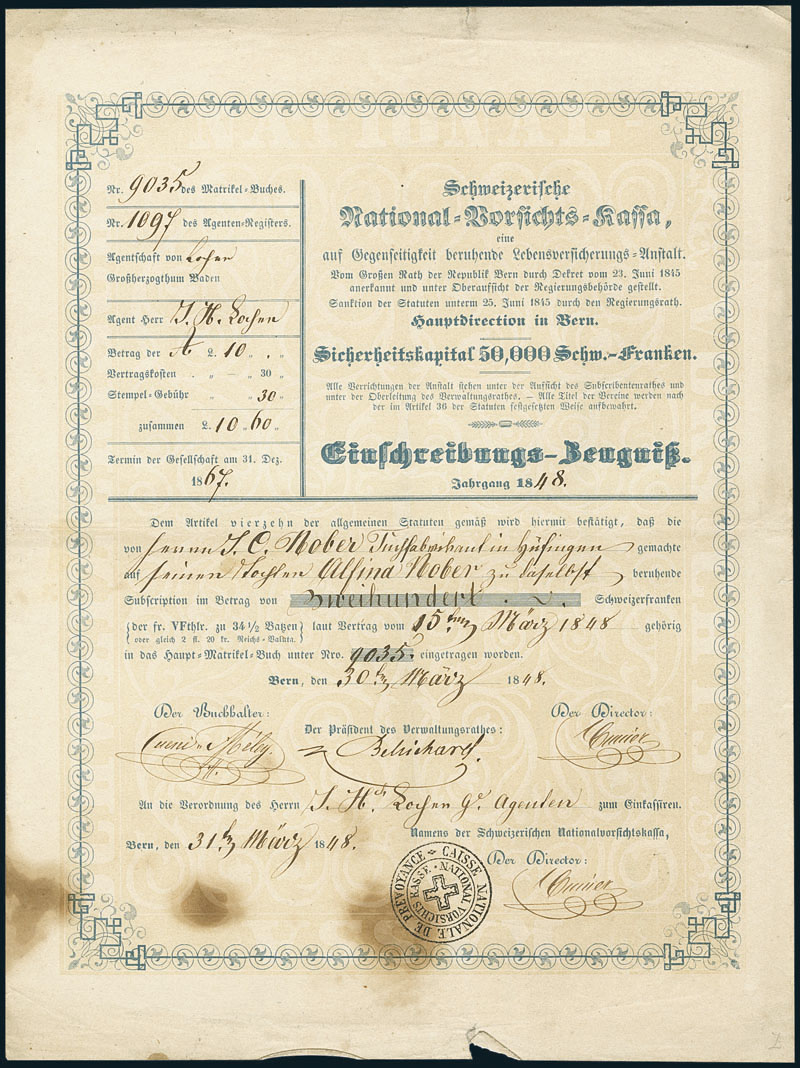 Nr. 9035 des Matrikel-Buches.
Nr. 1097 des Agenten-Registers.
Agentschaft von Locher
Großherzogthum Baden
Agent Herr J. H. Locher
Betrag der A £. 10 „ „
Vertragskosten „ — 30 „
Stempel-Gebühr „ 30 „
zusammen £. 10 60 „
Termin der Gesellschaft am 31. Dez.
1867.
Schweizerische
National-Vorsichts-Kassa,
eine
auf Gegenseitigkeit beruhende Lebensversicherungs-Anstalt.
Vom Großen Rath der Republik Bern durch Dekret vom 23. Juni 1845
anerkannt und unter Oberaufsicht der Regierungsbehörde gestellt.
Sanktion der Statuten unterm 25. Juni 1845 durch den Regierungsrath.
Hauptdirection in Bern.
Sicherheitskapital 50,000 Schw.-Franken.
Alle Verrichtungen der Anstalt stehen unter der Aufsicht des Subscribentenrathes und
unter der Oberleitung des Verwaltungsrathes. – Alle Titel der Vereine werden nach
der im Artikel 36 der Statuten festgesetzten Weise aufbewahrt.
Einschreibungs-Zeugniß.
Jahrgang 1848.
Dem Artikel vierzehn der allgemeinen Statuten gemäß wird hiermit bestätigt, daß die
von Herrn J. C. Nober Tuchfabrikant in Hüfingen gemachte
auf seinen Tochter Alsina Nober zu daselbst beruhende
Subscription im Betrag von Zweihundert Schweizerfranken
{der fr. VFthlr. zu 34½ Batzen} laut Vertrag vom 15ten März 1848 gehörig
{oder gleich 2 fl. 20 kr. Reichs-Valuta.}
in das Haupt-Matrikel-Buch unter Nro. 9035. eingetragen worden.
Bern, den 30ten März 1848.
Der Buchhalter:
Der Präsident des Verwaltungsrathes:
Der Director:
An die Verordnung des Herrn J. Hch. Locher Gl. Agenten zum Einkassiren.
Bern, den 31ten März 1848.
Namens der Schweizerischen Nationalvorsichtskassa,
Der Director:
CAISSE NATIONALE DE PREVOYANCE
NATIONAL VORSICHTS KASSE